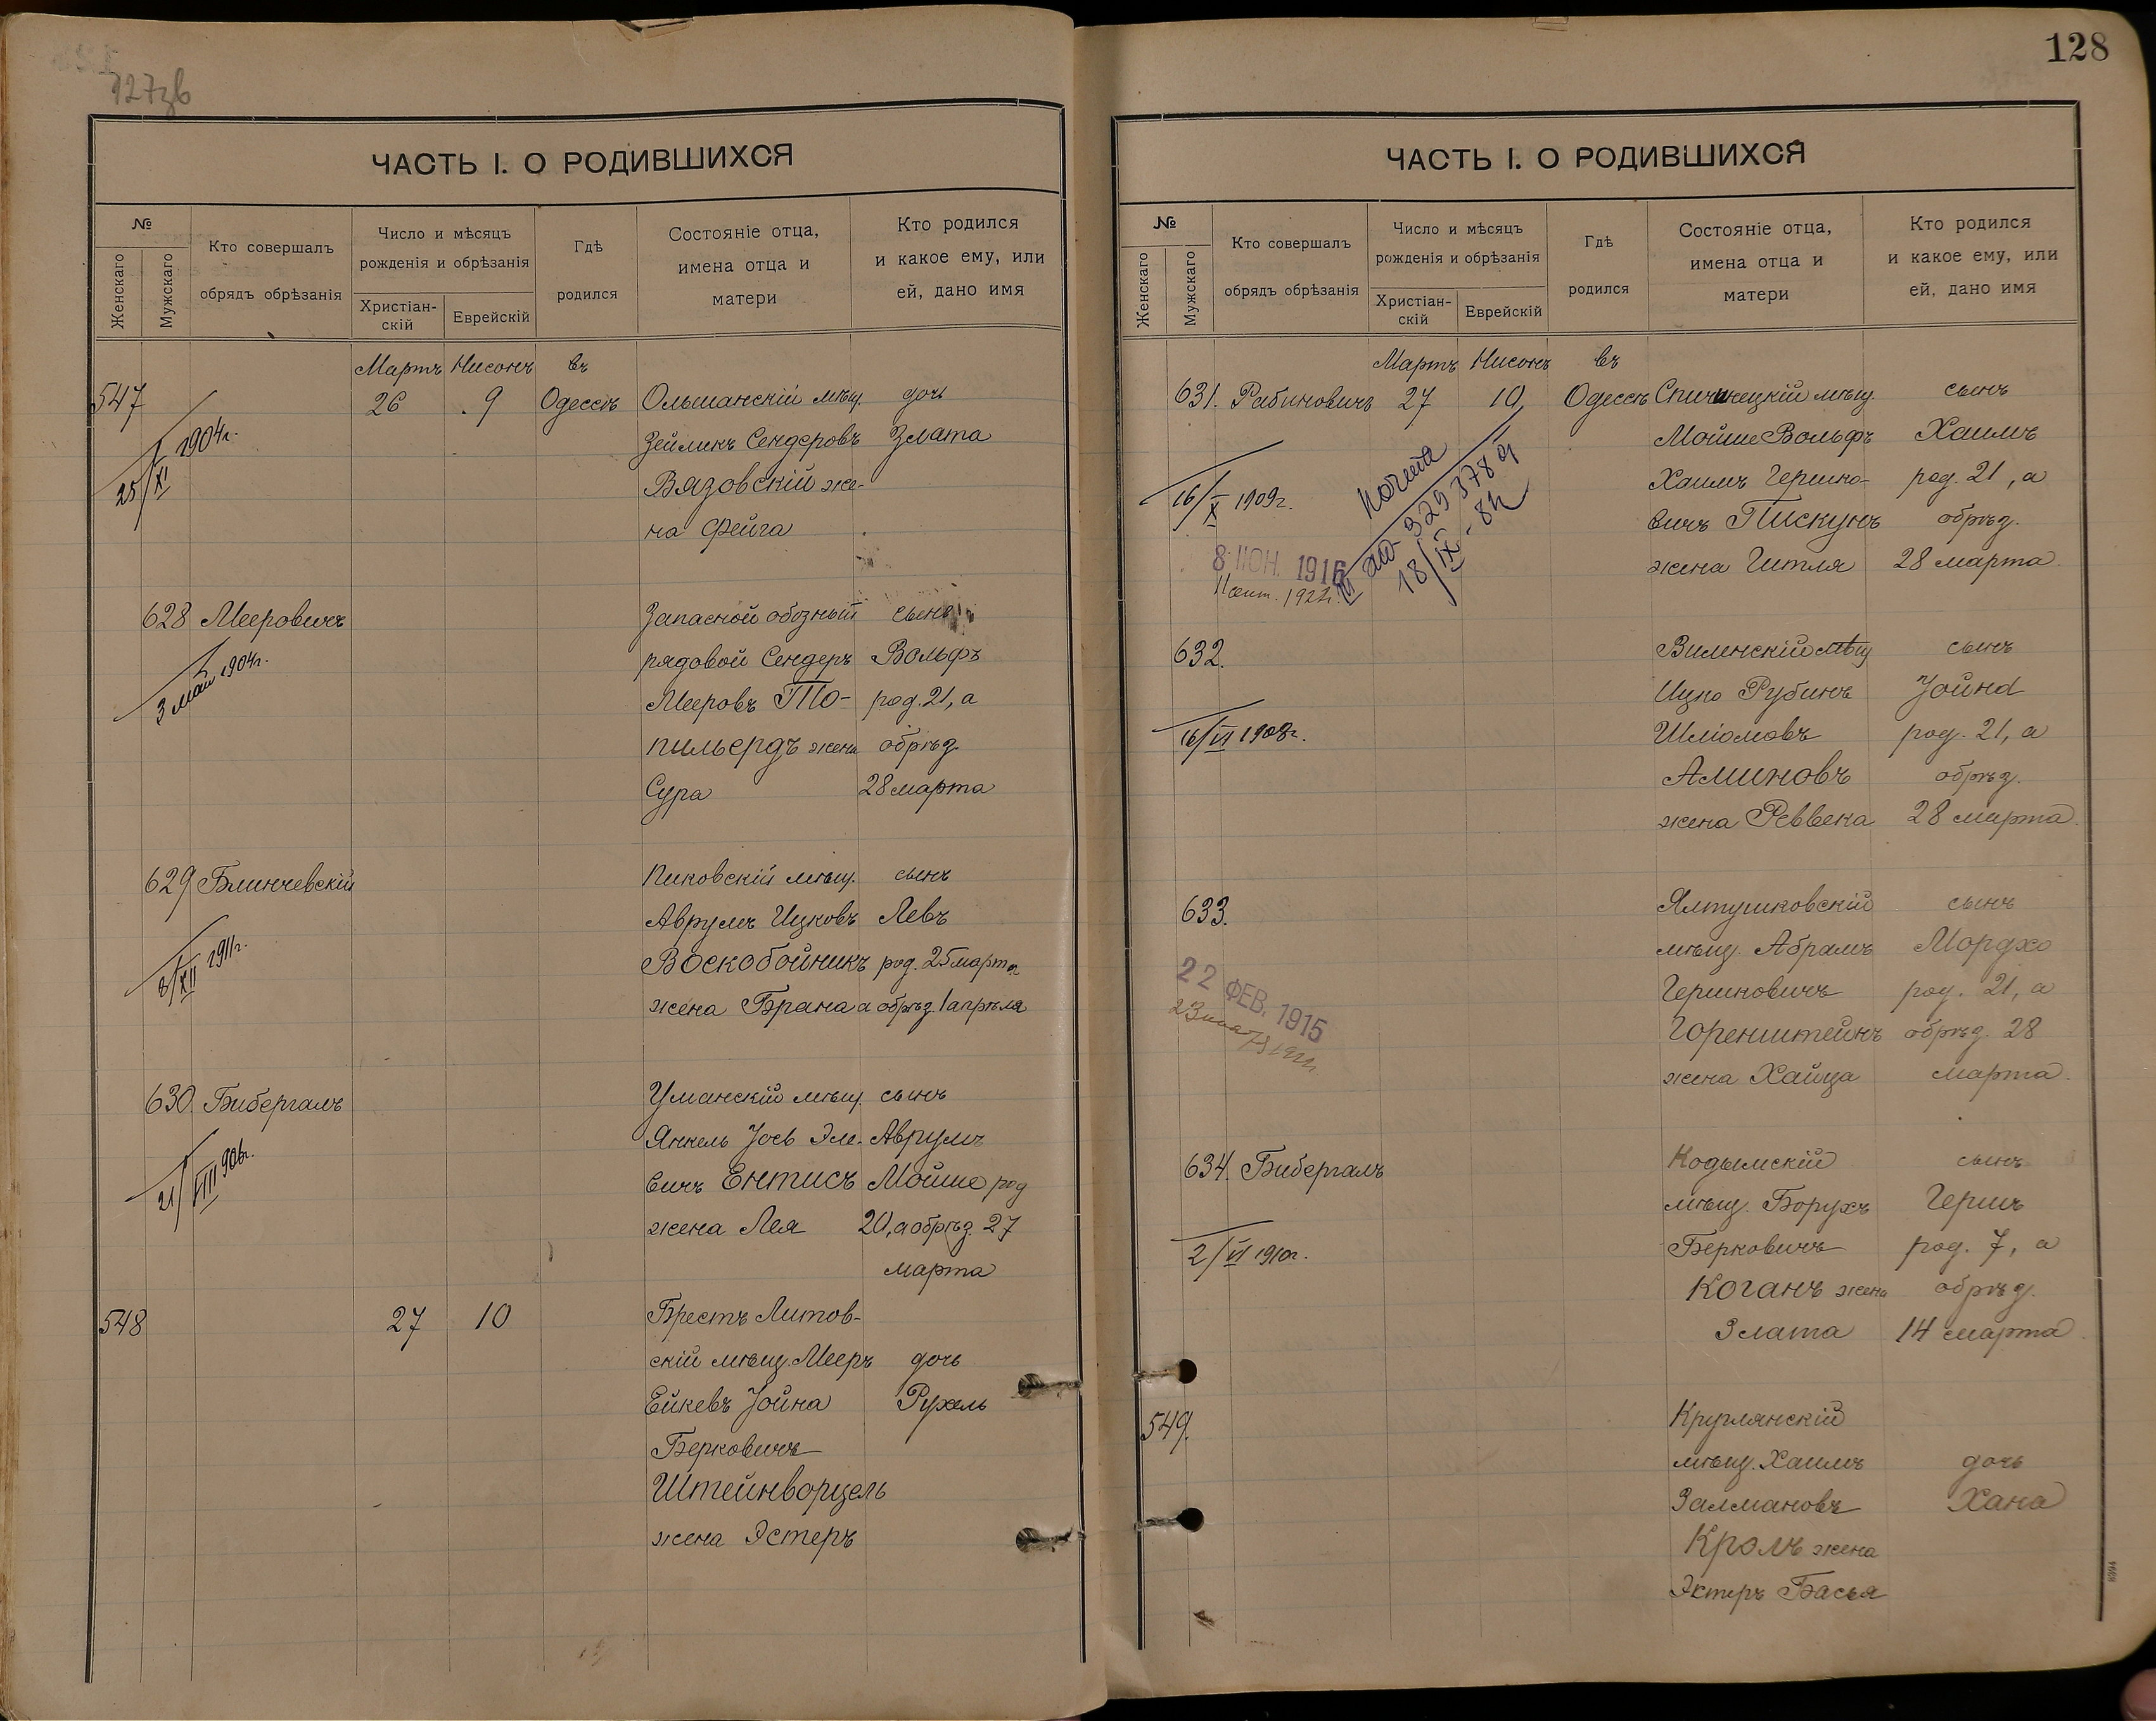 127зв
ЧАСТЬ I. О РОДИВШИХСЯ
№
Женскаго
Мужскаго
Кто совершалъ
обрядъ обрѣзанія
Число и мѣсяцъ
рожденія и обрѣзанія
Христіан-
скій
Еврейскій
Гдѣ
родился
Состояніе отца,
имена отца и
матери
Кто родился
и какое ему, или
ей, дано имя
Мартъ Нисонъ въ
547 26 9 Одессѣ Ольшанскій мѣщ. дочь
Зейликъ Сендеровъ Злата
Вязовскій же-
на Фейга
25/XI 1904г.
628 Мееровичъ Запасной обозный сынъ
рядовой Сендеръ Вольфъ
Мееровъ То- род. 21, а
пильердъ жена обрѣз.
Сура 28 марта
3 май 1904г.
629 Блинчевскій Пиковскій мѣщ. сынъ
Аврумъ Ицковъ Левъ
Воскобойникъ род. 25 марта
жена Брана а обрѣз. 1 апрѣля
6/XII 1911г.
630 Бибергалъ Уманскій мѣщ. сынъ
Янкель Іось Эле- Аврумъ
вичъ Ентисъ Мойше род
жена Лея 20, а обрѣз. 27
марта
21/VIII 906г.
548 27 10 Брестъ Литов-
скій мѣщ. Мееръ дочь
Ейкевъ Іойна Рухель
Берковичъ
Штейнворцель
жена Эстеръ
128
ЧАСТЬ I. О РОДИВШИХСЯ
№
Женскаго
Мужскаго
Кто совершалъ
обрядъ обрѣзанія
Число и мѣсяцъ
рожденія и обрѣзанія
Христіан-
скій
Еврейскій
Гдѣ
родился
Состояніе отца,
имена отца и
матери
Кто родился
и какое ему, или
ей, дано имя
Мартъ Нисонъ въ
631. Рабиновичъ 27 10 Одессѣ Спичинецкій мѣщ. сынъ
Мойше Вольфъ Хаимъ
Хаимъ Гершко- род. 21, а
вичъ Пискунъ обрѣз.
жена Гитля 28 марта
16/X 1909г.
8 ІЮН. 1916
11 сент. 1922г.
329378
18/IX-
632. Виленскій мѣщ сынъ
Ицко Рубинъ Іойна
Шліомовъ род. 21, а
Аминовъ обрѣз.
жена Реввека 28 марта
16/VI 1908г.
633. Ялтушковскій сынъ
мѣщ. Абрамъ Мордхо
Гершковичъ род. 21, а
Горенштейнъ обрѣз. 28
жена Хайца марта.
22 ФЕВ. 1915
634. Бибергалъ Кодымскій сынъ
мѣщ. Борухъ Гершъ
Берковичъ род. 7, а
Коганъ жена обрѣз.
Злата 14 марта
2/VI 1910г.
549. Круглянскій
мѣщ. Хаимъ дочь
Залмановъ Хана
Кролъ жена
Эстеръ Бася